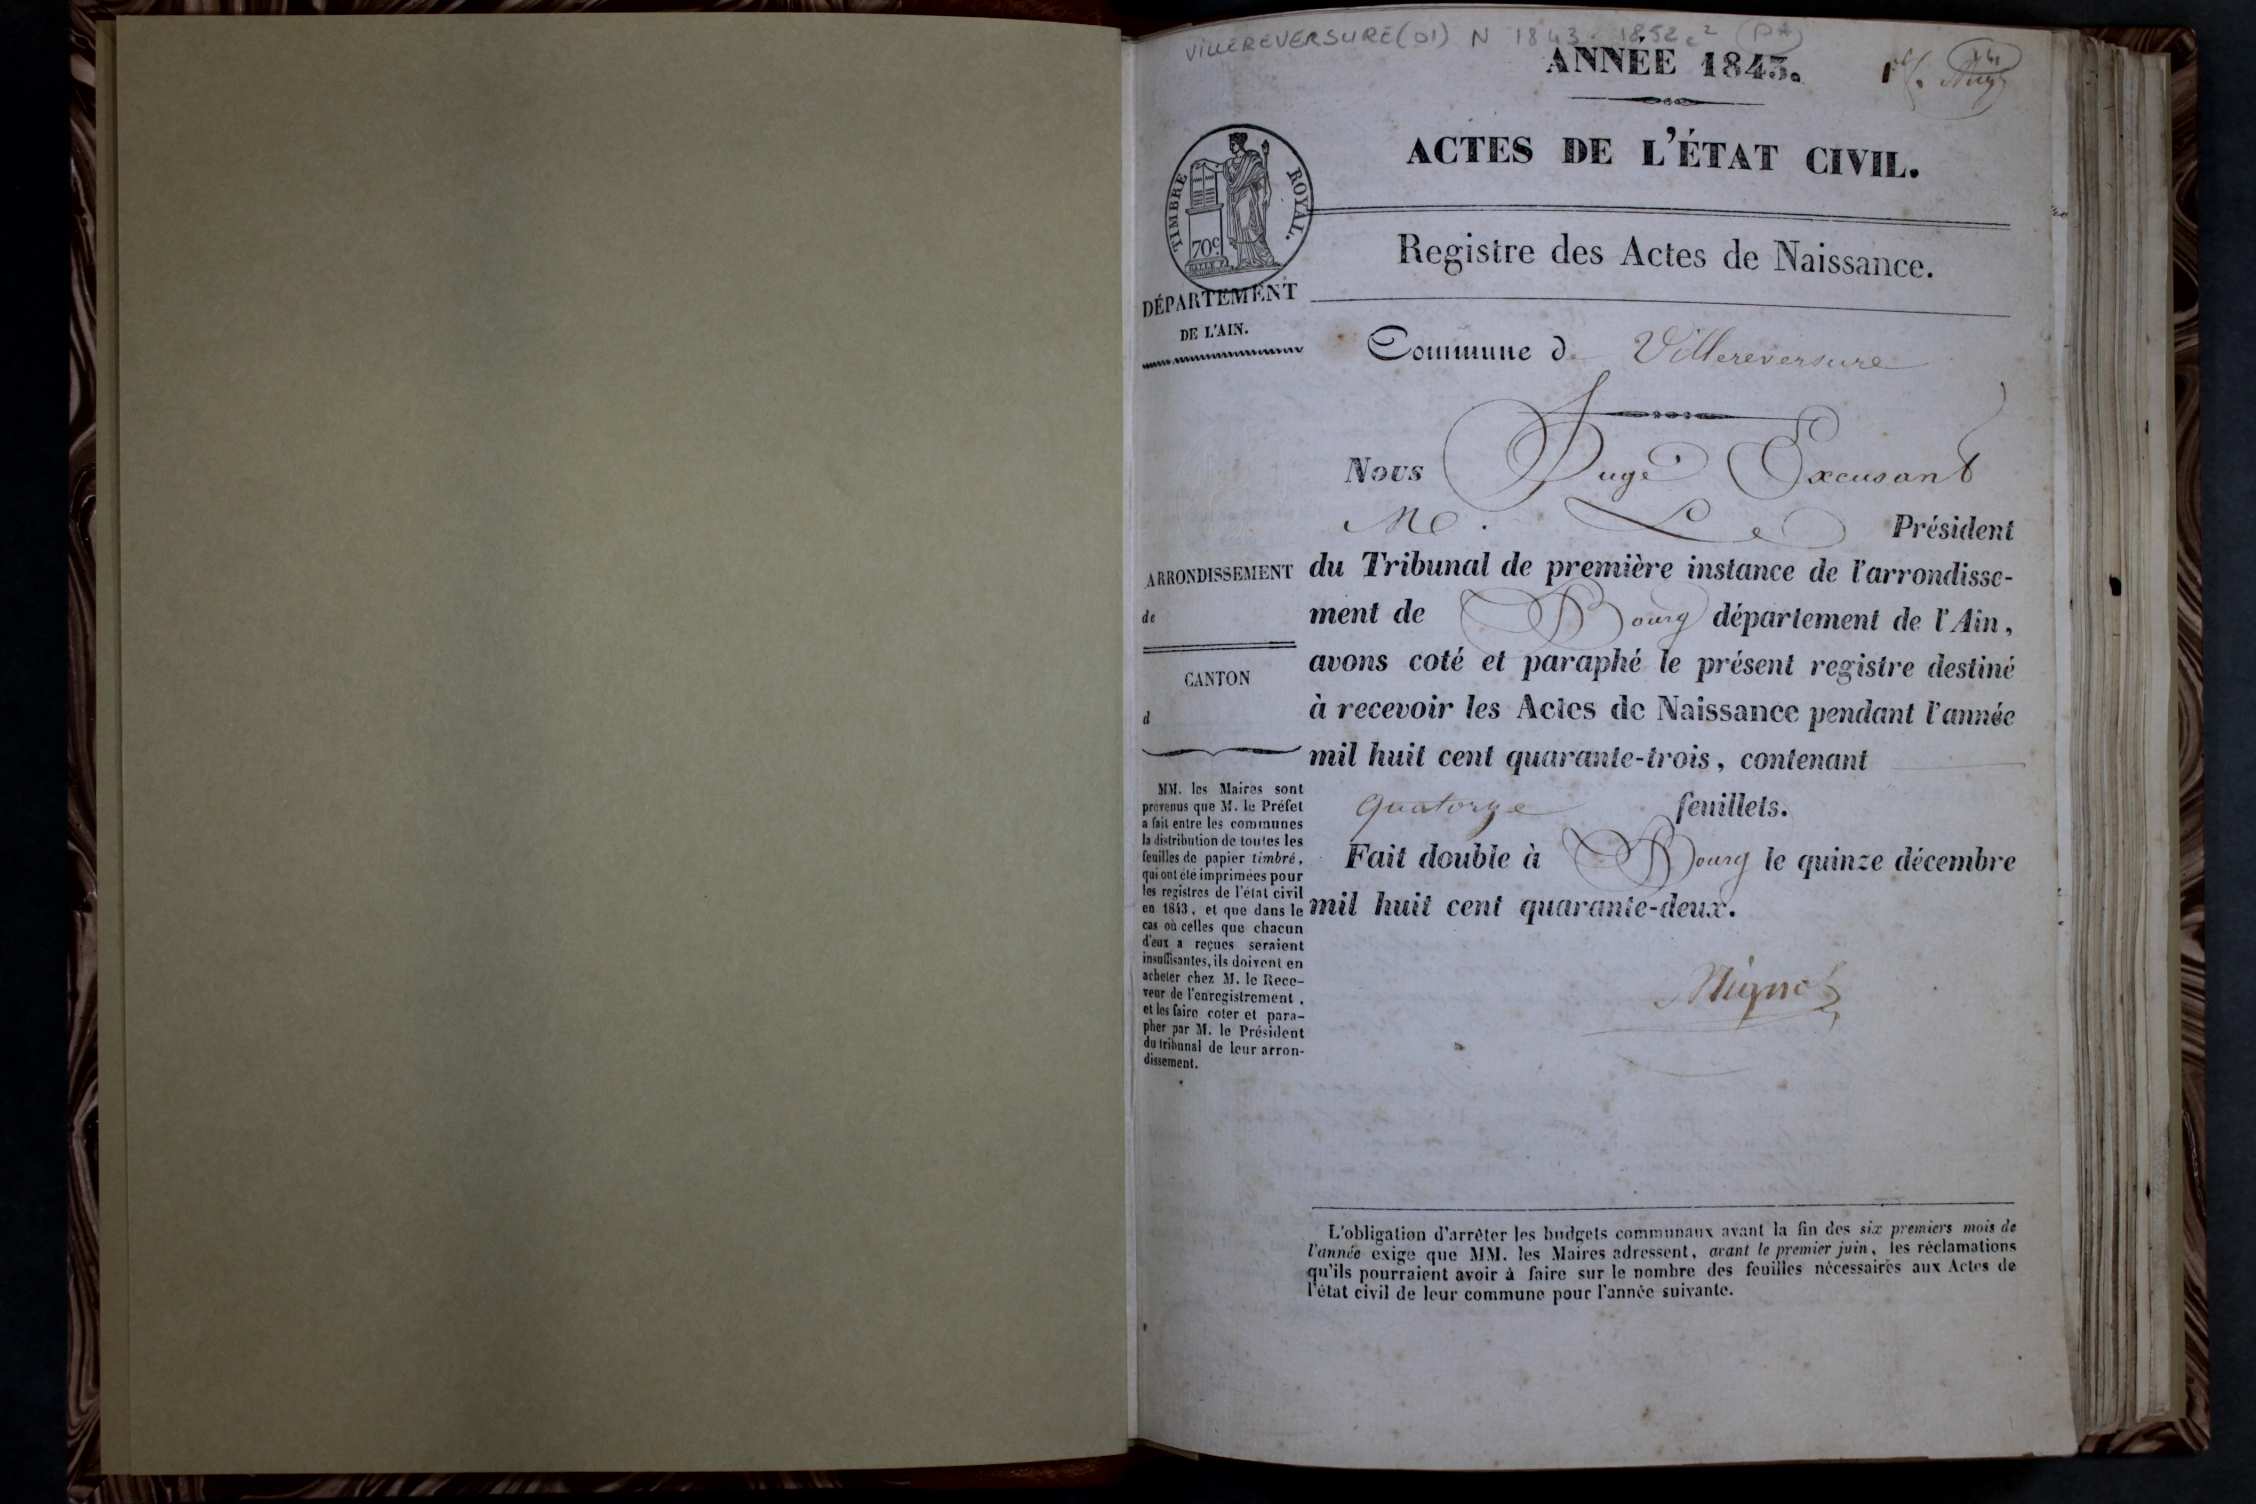 VILLEREVERSURE (01) N 1843. 1852
ANNÉE 1843.
ACTES DE L'ÉTAT CIVIL.
TIMBRE ROYAL.
70c
Registre des Actes de Naissance.
DÉPARTEMENT
DE L'AIN.
Commune d Villereversure
Nous Juge Excusant
M. Le Président
du Tribunal de première instance de l'arrondisse-
ment de Bourg département de l'Ain,
avons coté et paraphé le présent registre destiné
à recevoir les Actes de Naissance pendant l'année
mil huit cent quarante-trois, contenant
quatorze feuillets.
Fait double à Bourg le quinze décembre
mil huit cent quarante-deux.
ARRONDISSEMENT
de
CANTON
d
MM. les Maires sont
prévenus que M. le Préfet
a fait entre les communes
la distribution de toutes les
feuilles de papier timbré,
qui ont été imprimées pour
les registres de l'état civil
en 1843, et que dans le
cas où celles que chacun
d'eux a reçues seraient
insuffisantes, ils doivent en
acheter chez M. le Rece-
veur de l'enregistrement,
et les faire coter et para-
pher par M. le Président
du tribunal de leur arron-
dissement.
L'obligation d'arrêter les budgets communaux avant la fin des six premiers mois de
l'année exige que MM. les Maires adressent, avant le premier juin, les réclamations
qu'ils pourraient avoir à faire sur le nombre des feuilles nécessaires aux Actes de
l'état civil de leur commune pour l'année suivante.